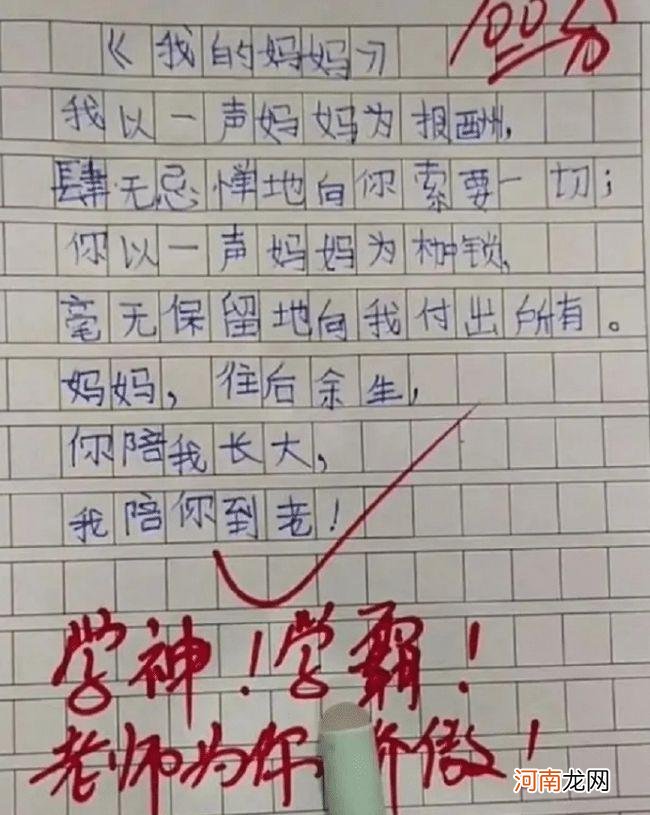 《我的妈妈》
100分
我以一声妈妈为报酬,
肆无忌惮地向你索要一切;
你以一声妈妈为枷锁,
毫无保留地向我付出所有。
妈妈,往后余生,
你陪我长大,
我陪你到老!
学神!学霸!
老师为你 傲!
河南龙网